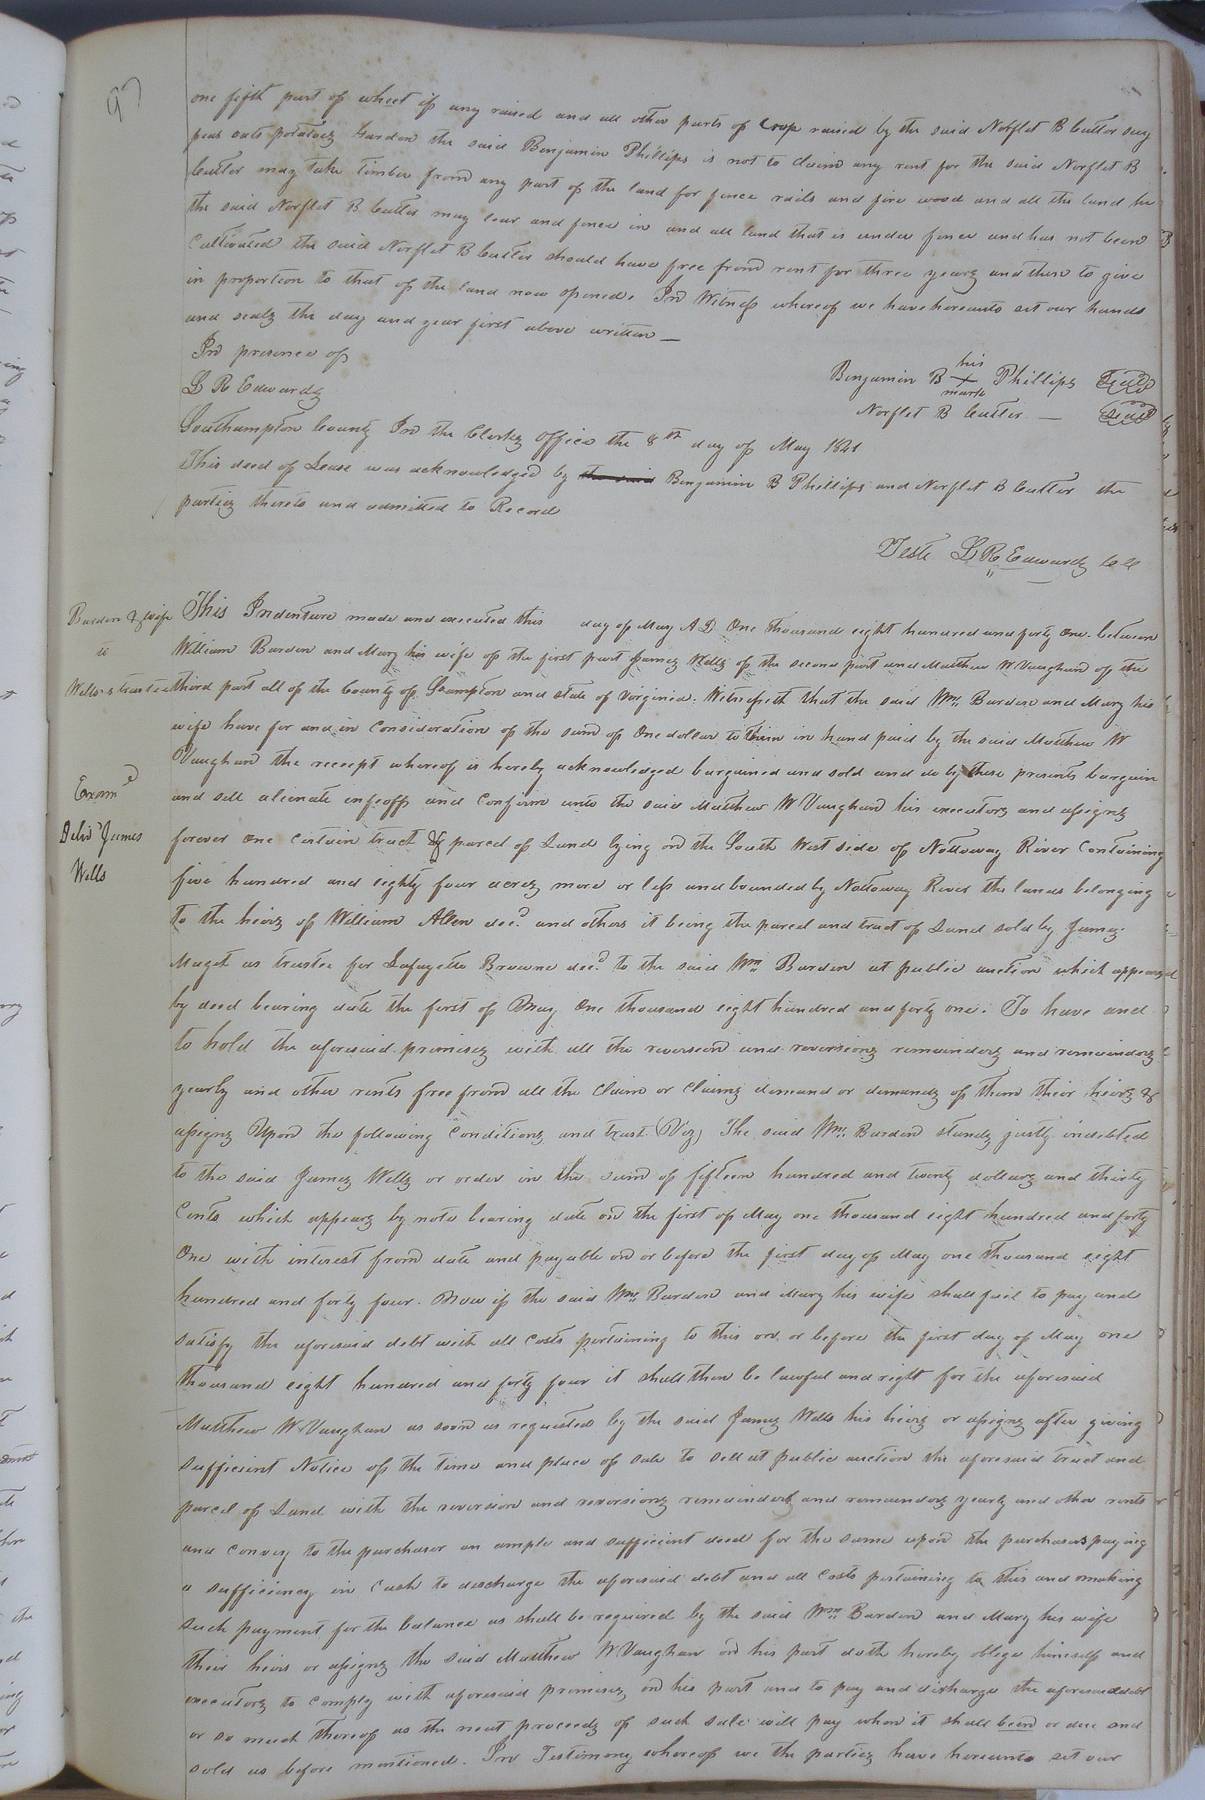 97
one fifth part of wheet if any raised and all other parts of Crop raised by the said Norflet B Cutler say
peas oats potatoes Garden the said Benjamin Phillips is not to claim any rent for the said Norflet B
Cutler may take timber from any part of the land for fence rails and fire wood and all the land he
the said Norflet B Cutler may clear and fence in and all land that is under fence and has not been
Cultivated the said Norflet B Cutler should have free from rent for three years and then to give
in proportion to that of the land now opened. In Witness whereof we have hereunto set our hands
and seals the day and year first above written —
In presence of
L R Edwards
Benjamin B his X mark Phillips Seal
Norflet B Cutler — Seal
Southampton County In the Clerks Office the 8th day of May 1841
This deed of Lease was acknowledged by the said Benjamin B Phillips and Norflet B Cutler the
parties thereto and admitted to Record
Teste L R Edwards
Burdon & wife
to
Wells's trustee
Exam'd
Deliv'd James
Wells
This Indenture made and executed this day of May A D One thousand eight hundred and forty one between
William Burdon and Mary his wife of the first part James Wells of the second part and Matthew W Vaughan of the
third part all of the County of Shampton and state of Virginia. Witnesseth that the said Wm. Burdon and Mary his
wife have for and in Consideration of the sum of One dollar to them in hand paid by the said Matthew W
Vaughan the receipt whereof is hereby acknowledged bargained and sold and do by these presents bargain
and sell alienate enfeoff and Confirm unto the said Matthew W Vaughan his executors and assigns
forever one certain tract & parcel of Land lying on the South West side of Nottoway River Containing
five hundred and eighty four acres more or less and bounded by Nottoway River the lands belonging
to the heirs of William Allen decd. and others it being the parcel and tract of Land sold by James
Maget as trustee for Lafayette Browne decd. to the said Wm. Burdon at public auction which appears
by deed bearing date the first of May One thousand eight hundred and forty one. To have and
to hold the aforesaid premises with all the reversion and reversions remainders and remainders
yearly and other rents free from all the Claim or Claims demand or demands of them their heirs &
assigns Upon the following Conditions and trust (Viz) The said Wm. Burdon stands justly indebted
to the said James Wells or order in the sum of fifteen hundred and twenty dollars and thirty
Cents which appears by note bearing date on the first of May one thousand eight hundred and forty
One with interest from date and payable on or before the first day of May one thousand eight
hundred and forty four. Now if the said Wm. Burdon and Mary his wife shall fail to pay and
satisfy the aforesaid debt with all Costs pertaining to this on or before the first day of May one
thousand eight hundred and forty four it shall then be lawful and right for the aforesaid
Matthew W Vaughan as soon as requested by the said James Wells his heirs or assigns after giving
sufficient Notice of the time and place of sale to sell at public auction the aforesaid tract and
parcel of Land with the reversion and reversions remainders and remainders yearly and other rents
and convey to the purchaser an ample and sufficient deed for the same upon the purchasers paying
a sufficiency in Cash to discharge the aforesaid debt and all Costs pertaining to this and making
such payment for the balance as shall be required by the said Wm. Burdon and Mary his wife
their heirs or assigns the said Matthew W Vaughan on his part doth hereby oblige himself and
executors to comply with aforesaid premises on his part and to pay and discharge the aforesaid debt
or so much thereof as the neat proceeds of such sale will pay when it shall been or due and
sold as before mentioned. In Testimony whereof we the parties have hereunto set our